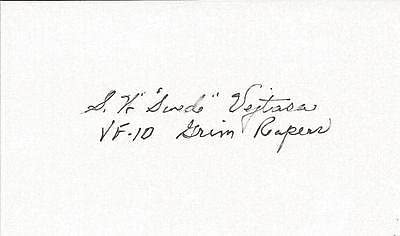 S. W. "Swede" Vejtasa
VF-10 Grim Reapers